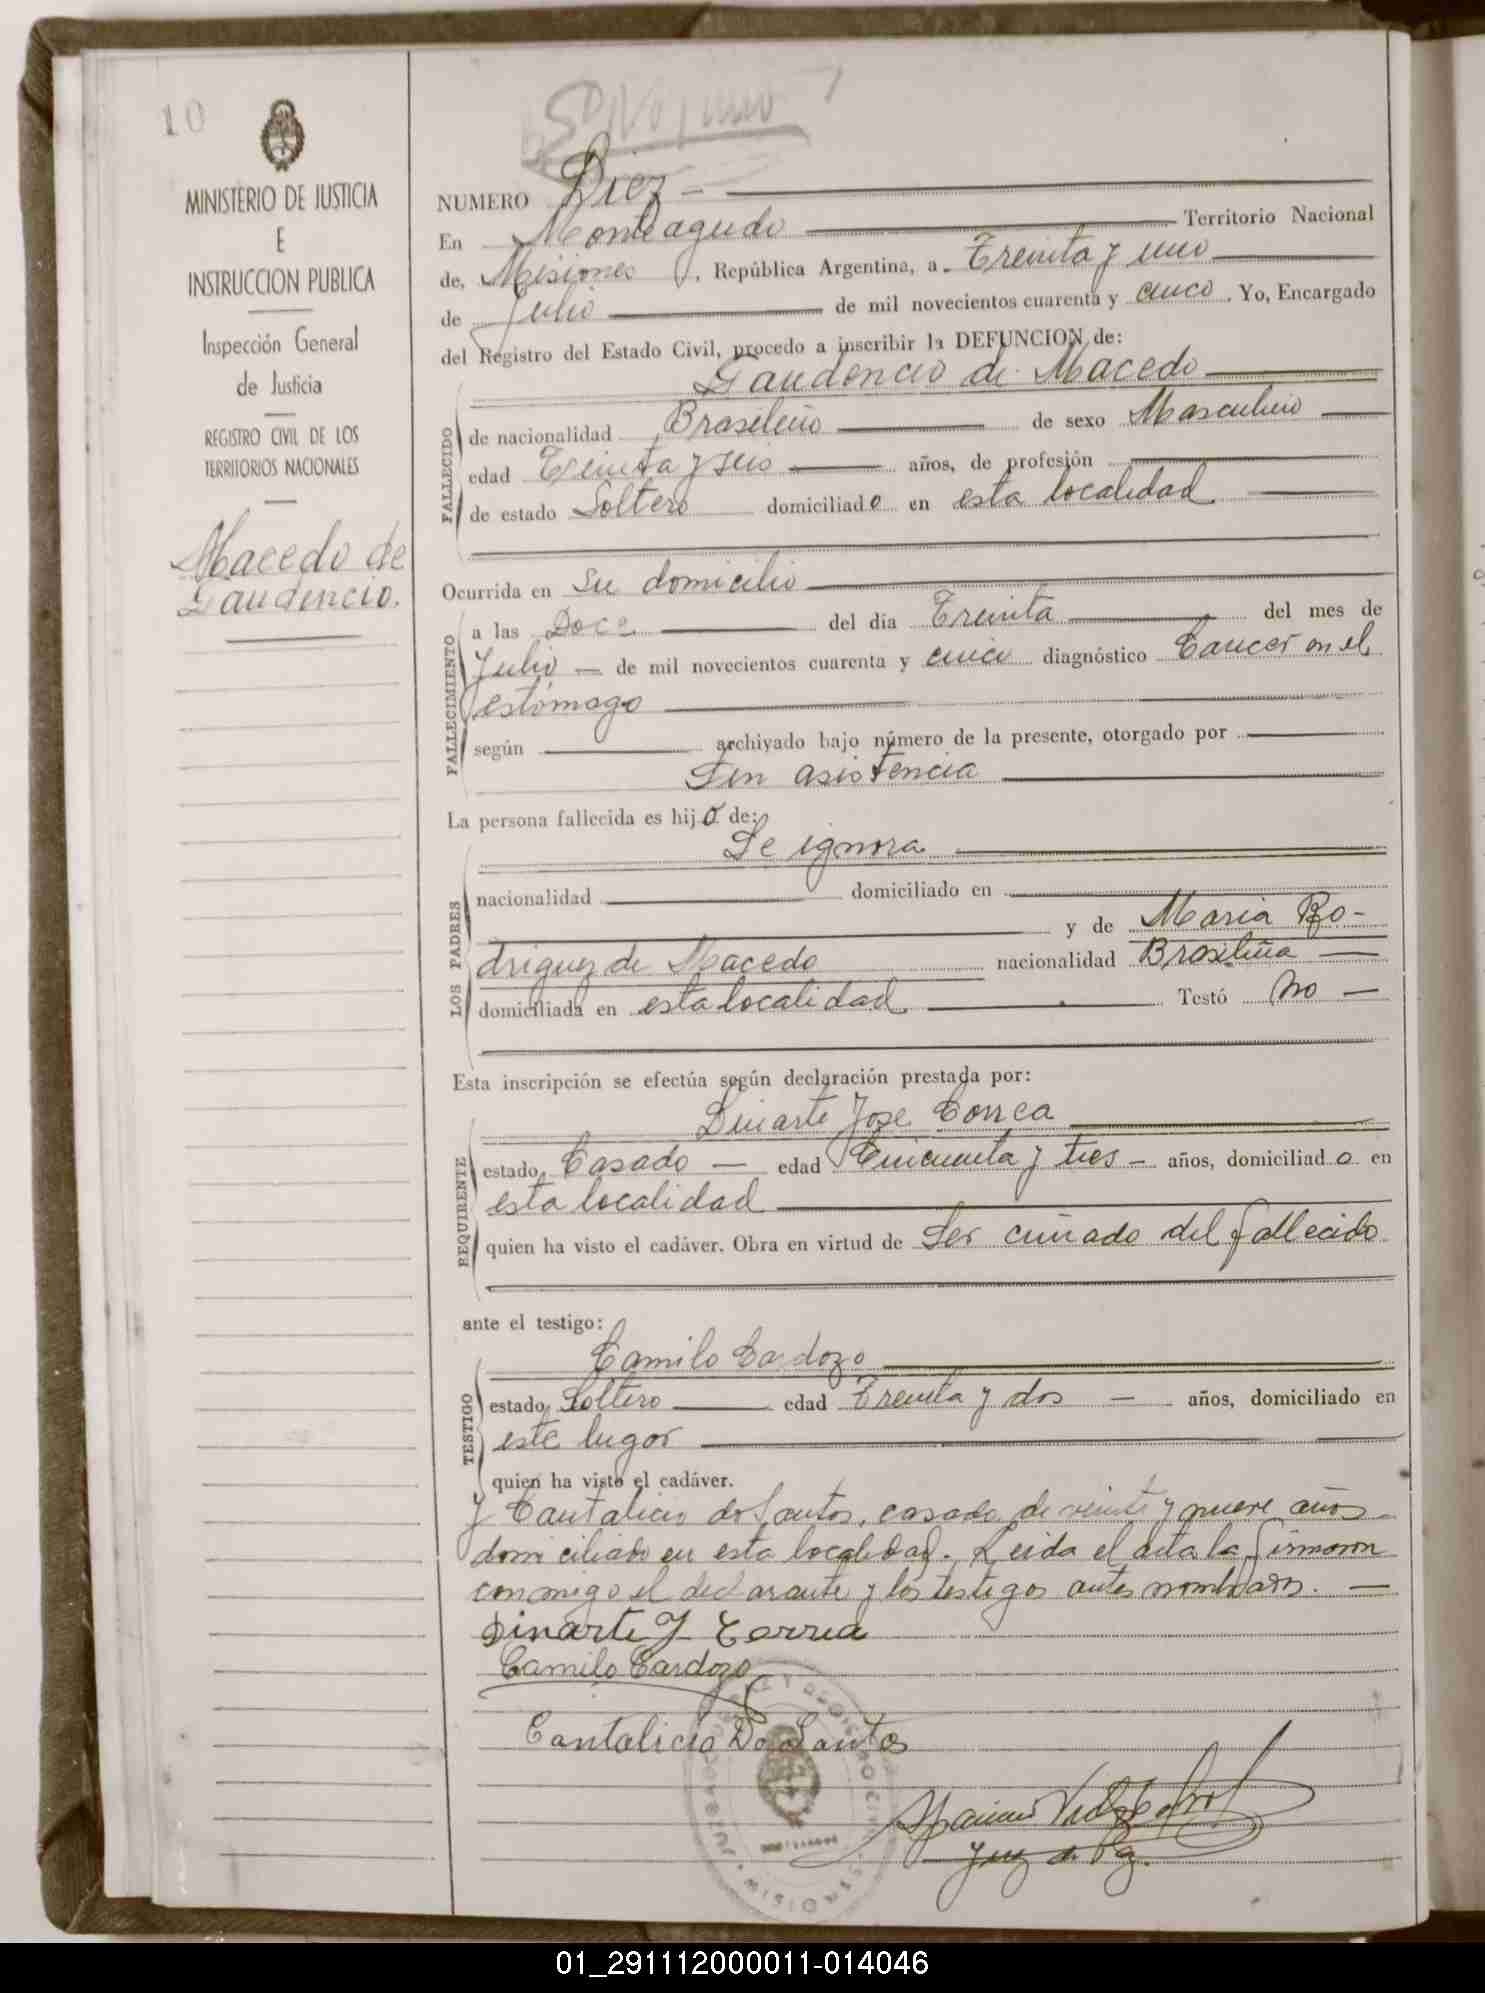 10
MINISTERIO DE JUSTICIA
E
INSTRUCCION PUBLICA
Inspección General
de Justicia
REGISTRO CIVIL DE LOS
TERRITORIOS NACIONALES
Macedo de
Gaudencio.
NUMERO Diez -
En Monteagudo Territorio Nacional
de, Misiones, República Argentina, a Treinta y uno
de Julio de mil novecientos cuarenta y cinco. Yo, Encargado
del Registro del Estado Civil, procedo a inscribir la DEFUNCION de:
Gaudencio de Macedo
FALLECIDO
de nacionalidad Brasileño de sexo Masculino
edad Treinta y seis años, de profesión
de estado Soltero domiciliado en esta localidad
Ocurrida en su domicilio
FALLECIMIENTO
a las Doce del día Treinta del mes de
Julio — de mil novecientos cuarenta y cinco diagnóstico Cancer en el
estómago
según archivado bajo número de la presente, otorgado por
Sin asistencia
La persona fallecida es hijo de:
Se ignora
LOS PADRES
nacionalidad domiciliado en
y de Maria Ro-
driguez de Macedo nacionalidad Brasileña
domiciliada en esta localidad Testó No —
Esta inscripción se efectúa según declaración prestada por:
Dinarte Jose Correa
REQUIRENTE
estado Casado — edad Cincuenta y tres - años, domiciliado en
esta localidad
quien ha visto el cadáver. Obra en virtud de Ser cuñado del fallecido
ante el testigo:
Camilo Cardozo
TESTIGO
estado Soltero edad Treinta y dos — años, domiciliado en
este lugar
quien ha visto el cadáver.
y Cantalicio do Santos, casado, de veinte y nueve años
domiciliado en esta localidad. Leida el acta la firmaron
conmigo el declarante y los testigos antes nombrados. —
Dinarte J Correa
Camilo Cardozo
Cantalicio Do Santos
Juez de Paz.
01_291112000011-014046